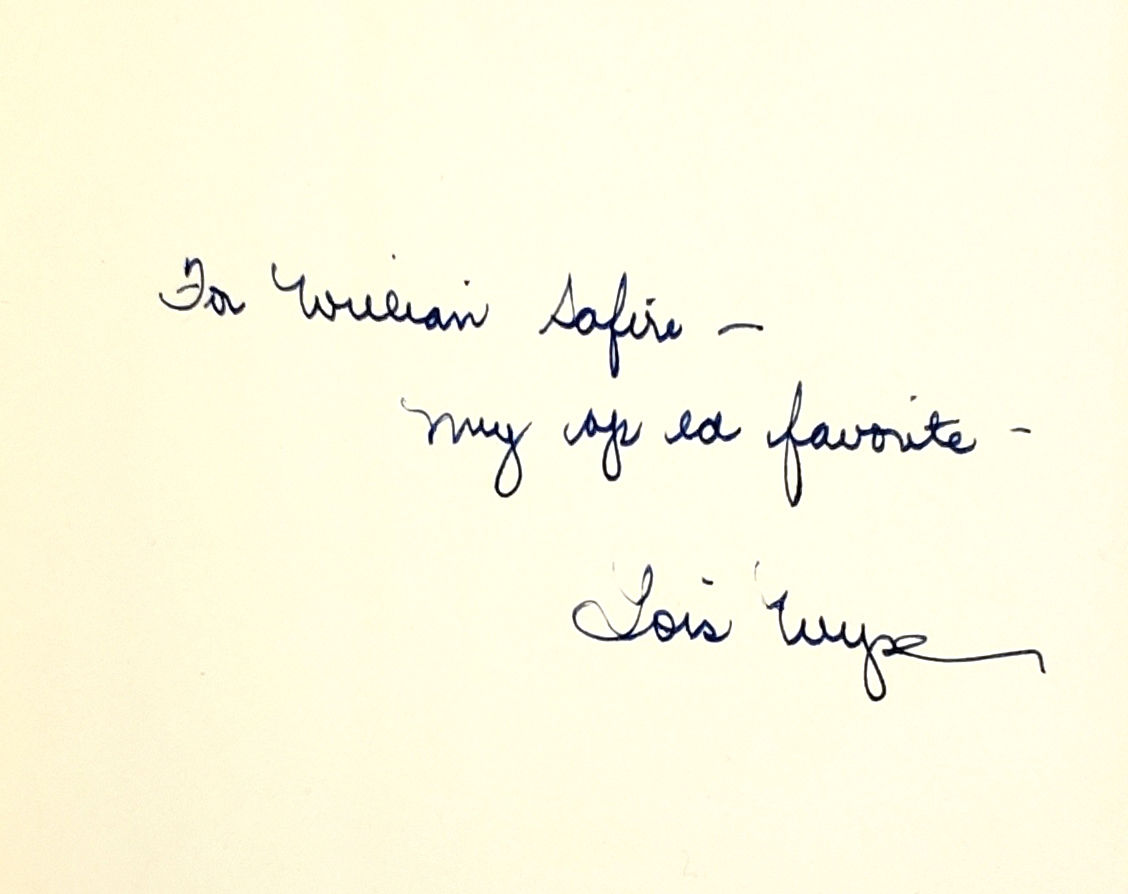 For William Safire —
my op ed favorite -
Lois Wyse